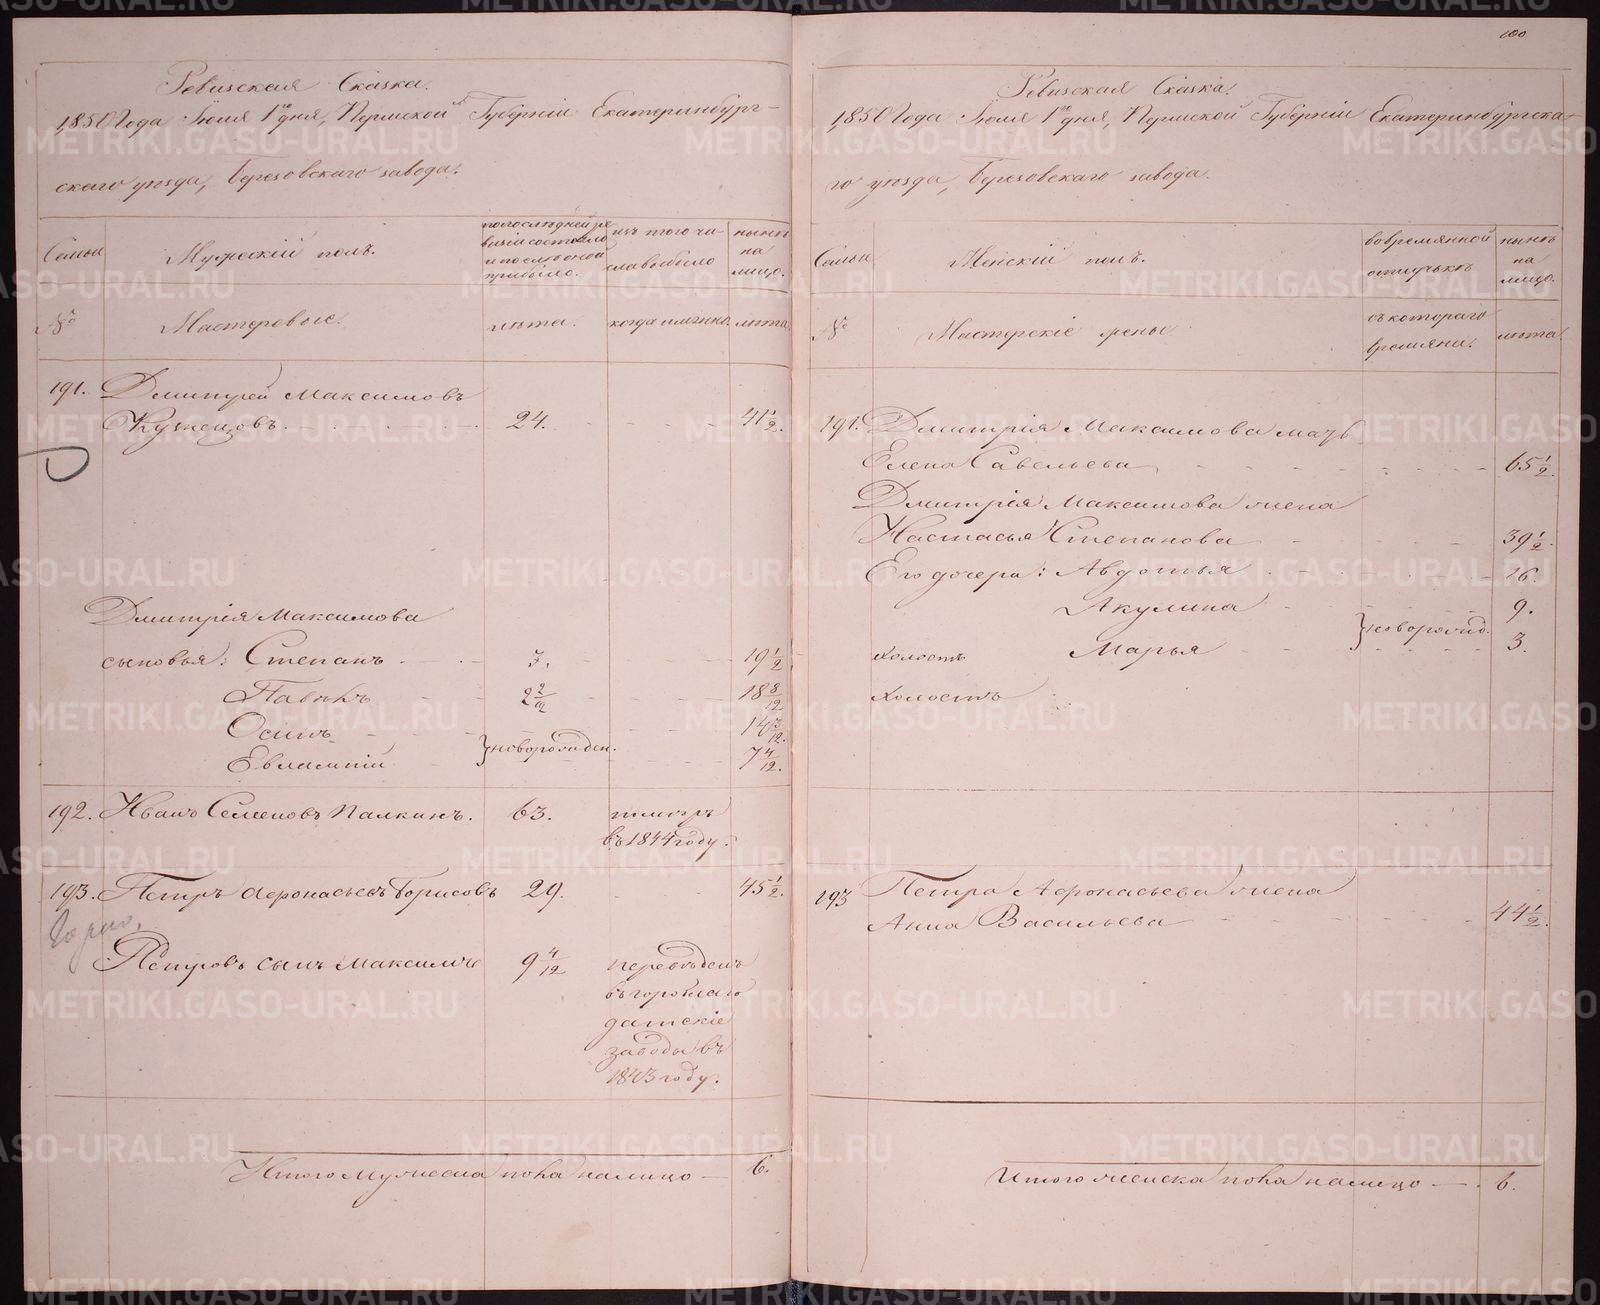 Ревизская Сказка.
1850 Года Июля 1го дня, Пермской Губерніи Екатеринбург-
скаго уѣзда, Березовскаго завода.
Семьи
Мужескій полъ.
по последней ре
визіи состояло
и после оной
прибыло.
изъ того чи-
сла выбыло
нынѣ
на
лицо.
№
Мастеровые.
лѣта.
когда имянно.
лѣта
191. Дмитрей Максимовъ
Кузнецовъ. 24. 41 1/2.
Дмитрія Максимова
сыновья: Степанъ 3. 19 1/2
Павелъ 2 2/12 18 8/12
Осипъ 14 3/12.
} новорожден.
Евлампій 7 4/12.
192. Иванъ Семеновъ Палкинъ. 63. помѣръ
въ 1844 году.
193. Петръ Афонасьевъ Борисовъ 29. 45 1/2.
Петровъ сынъ Максимъ 9 4/12 переведенъ
въ гороблаго
датскіе
заводы въ
1843 году.
Итого Мужеска пола налицо — 6.
100
Ревизская Сказка.
1850 Года Июля 1го дня, Пермской Губерніи Екатеринбургска-
го уѣзда, Березовскаго завода.
Семьи
Женскій полъ.
во временной
отлучькѣ
нынѣ
на
лицо.
№
Мастерскіе жены
съ котораго
времяни.
лѣта.
191. Дмитрія Максимова мать
Елена Савельева 65 1/2.
Дмитрія Максимова жена
Настасья Степанова 39 1/2.
Его дочери: Авдотья 16.
Акулина 9.
} новорожд.
холостъ Марья 3.
холостъ
193 Петра Афонасьева жена
Анна Васильева 44 1/2.
Итого женска пола налицо — 6.
METRIKI.GASO-URAL.RU